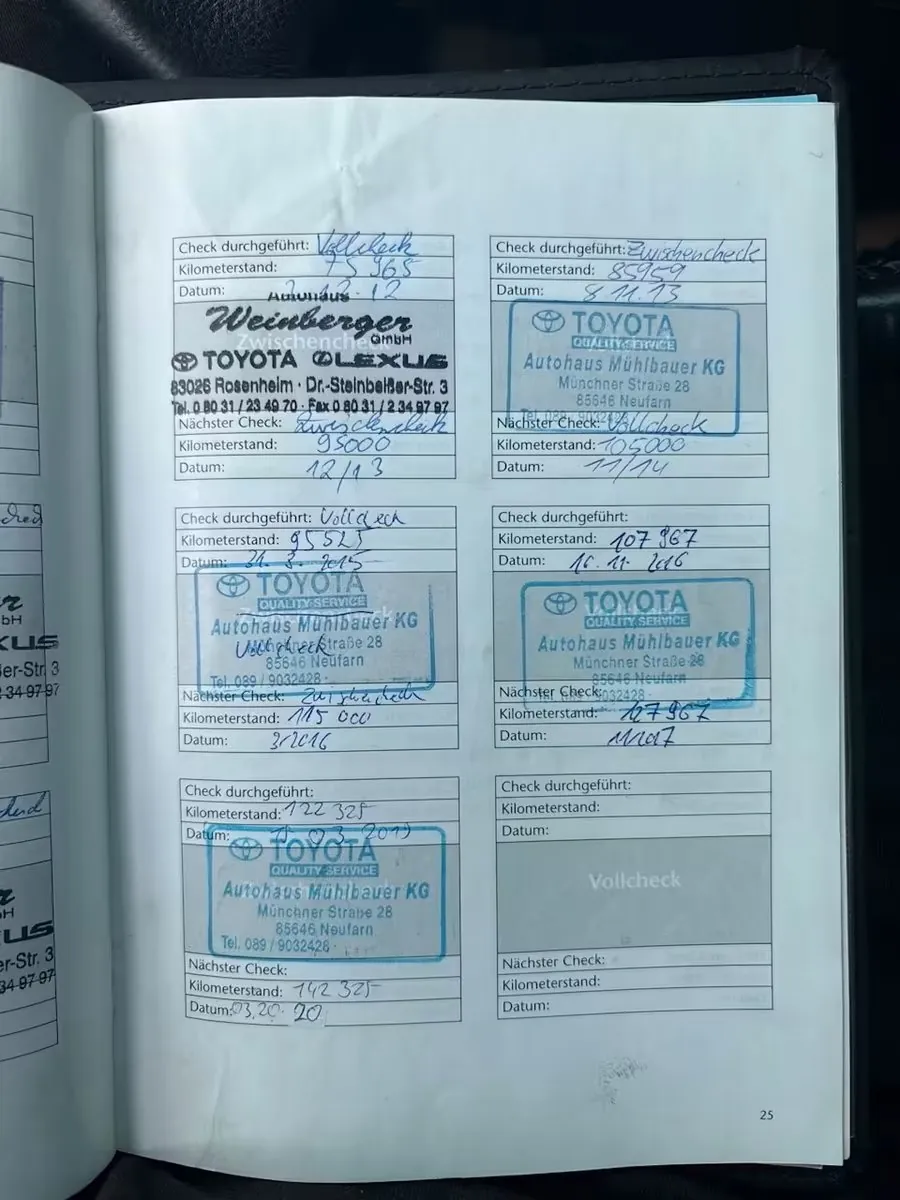 Check durchgeführt: Vollcheck
Kilometerstand: 75 965
Datum: 12.12
Autohaus
Weinberger
GmbH
Zwischencheck
TOYOTA LEXUS
83026 Rosenheim · Dr.-Steinbeißer-Str. 3
Tel. 0 80 31 / 23 49 70 · Fax 0 80 31 / 2 34 97 97
Nächster Check: Zwischencheck
Kilometerstand: 95000
Datum: 12/13
Check durchgeführt: Zwischencheck
Kilometerstand: 85959
Datum: 8.11.13
TOYOTA
QUALITY-SERVICE
Autohaus Mühlbauer KG
Münchner Straße 28
85646 Neufarn
Tel. 089 / 9032428
Nächster Check: Vollcheck
Kilometerstand: 105000
Datum: 11/14
Check durchgeführt: Vollcheck
Kilometerstand: 95525
Datum: 31. 3. 2015
TOYOTA
QUALITY-SERVICE
Autohaus Mühlbauer KG
Vollcheck
Münchner Straße 28
85646 Neufarn
Tel. 089 / 9032428 ·
Nächster Check: Zwischencheck
Kilometerstand: 115 000
Datum: 3/2016
Check durchgeführt:
Kilometerstand: 107 967
Datum: 16. 11. 2016
TOYOTA
QUALITY-SERVICE
Autohaus Mühlbauer KG
Münchner Straße 28
85646 Neufarn
9032428 ·
Nächster Check:
Kilometerstand: 127 967
Datum: 11/2017
Check durchgeführt:
Kilometerstand: 122 325
Datum: 15 03 2019
TOYOTA
QUALITY-SERVICE
Autohaus Mühlbauer KG
Münchner Straße 28
85646 Neufarn
Tel. 089 / 9032428 ·
Nächster Check:
Kilometerstand: 142 325
Datum: 03,20 20
Check durchgeführt:
Kilometerstand:
Datum:
Vollcheck
Nächster Check:
Kilometerstand:
Datum:
25